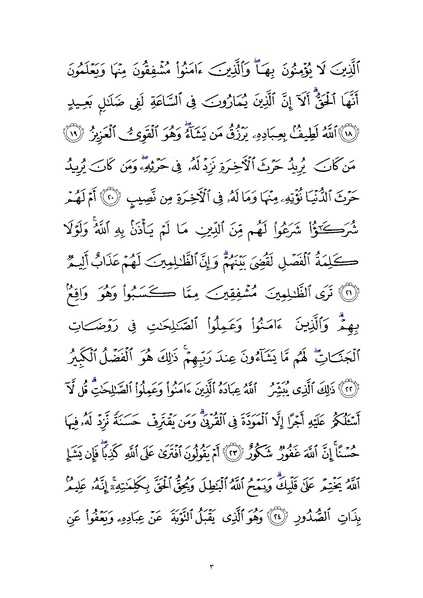 ٱلَّذِينَ لَا يُؤْمِنُونَ بِهَاۖ وَٱلَّذِينَ ءَامَنُوا۟ مُشْفِقُونَ مِنْهَا وَيَعْلَمُونَ
أَنَّهَا ٱلْحَقُّۗ أَلَآ إِنَّ ٱلَّذِينَ يُمَارُونَ فِى ٱلسَّاعَةِ لَفِى ضَلَٰلٍۭ بَعِيدٍ
﴿١٨﴾ ٱللَّهُ لَطِيفٌۢ بِعِبَادِهِۦ يَرْزُقُ مَن يَشَآءُۖ وَهُوَ ٱلْقَوِىُّ ٱلْعَزِيزُ ﴿١٩﴾
مَن كَانَ يُرِيدُ حَرْثَ ٱلْءَاخِرَةِ نَزِدْ لَهُۥ فِى حَرْثِهِۦۖ وَمَن كَانَ يُرِيدُ
حَرْثَ ٱلدُّنْيَا نُؤْتِهِۦ مِنْهَا وَمَا لَهُۥ فِى ٱلْءَاخِرَةِ مِن نَّصِيبٍ ﴿٢٠﴾ أَمْ لَهُمْ
شُرَكَٰٓؤُا۟ شَرَعُوا۟ لَهُم مِّنَ ٱلدِّينِ مَا لَمْ يَأْذَنۢ بِهِ ٱللَّهُۚ وَلَوْلَا
كَلِمَةُ ٱلْفَصْلِ لَقُضِىَ بَيْنَهُمْۗ وَإِنَّ ٱلظَّٰلِمِينَ لَهُمْ عَذَابٌ أَلِيمٌ
﴿٢١﴾ تَرَى ٱلظَّٰلِمِينَ مُشْفِقِينَ مِمَّا كَسَبُوا۟ وَهُوَ وَاقِعٌۢ
بِهِمْۗ وَٱلَّذِينَ ءَامَنُوا۟ وَعَمِلُوا۟ ٱلصَّٰلِحَٰتِ فِى رَوْضَاتِ
ٱلْجَنَّاتِۖ لَهُم مَّا يَشَآءُونَ عِندَ رَبِّهِمْۚ ذَٰلِكَ هُوَ ٱلْفَضْلُ ٱلْكَبِيرُ
﴿٢٢﴾ ذَٰلِكَ ٱلَّذِى يُبَشِّرُ ٱللَّهُ عِبَادَهُ ٱلَّذِينَ ءَامَنُوا۟ وَعَمِلُوا۟ ٱلصَّٰلِحَٰتِۗ قُل لَّآ
أَسْـَٔلُكُمْ عَلَيْهِ أَجْرًا إِلَّا ٱلْمَوَدَّةَ فِى ٱلْقُرْبَىٰۗ وَمَن يَقْتَرِفْ حَسَنَةً نَّزِدْ لَهُۥ فِيهَا
حُسْنًاۚ إِنَّ ٱللَّهَ غَفُورٌ شَكُورٌ ﴿٢٣﴾ أَمْ يَقُولُونَ ٱفْتَرَىٰ عَلَى ٱللَّهِ كَذِبًاۖ فَإِن يَشَإِ
ٱللَّهُ يَخْتِمْ عَلَىٰ قَلْبِكَۗ وَيَمْحُ ٱللَّهُ ٱلْبَٰطِلَ وَيُحِقُّ ٱلْحَقَّ بِكَلِمَٰتِهِۦٓۚ إِنَّهُۥ عَلِيمٌۢ
بِذَاتِ ٱلصُّدُورِ ﴿٢٤﴾ وَهُوَ ٱلَّذِى يَقْبَلُ ٱلتَّوْبَةَ عَنْ عِبَادِهِۦ وَيَعْفُوا۟ عَنِ
٣